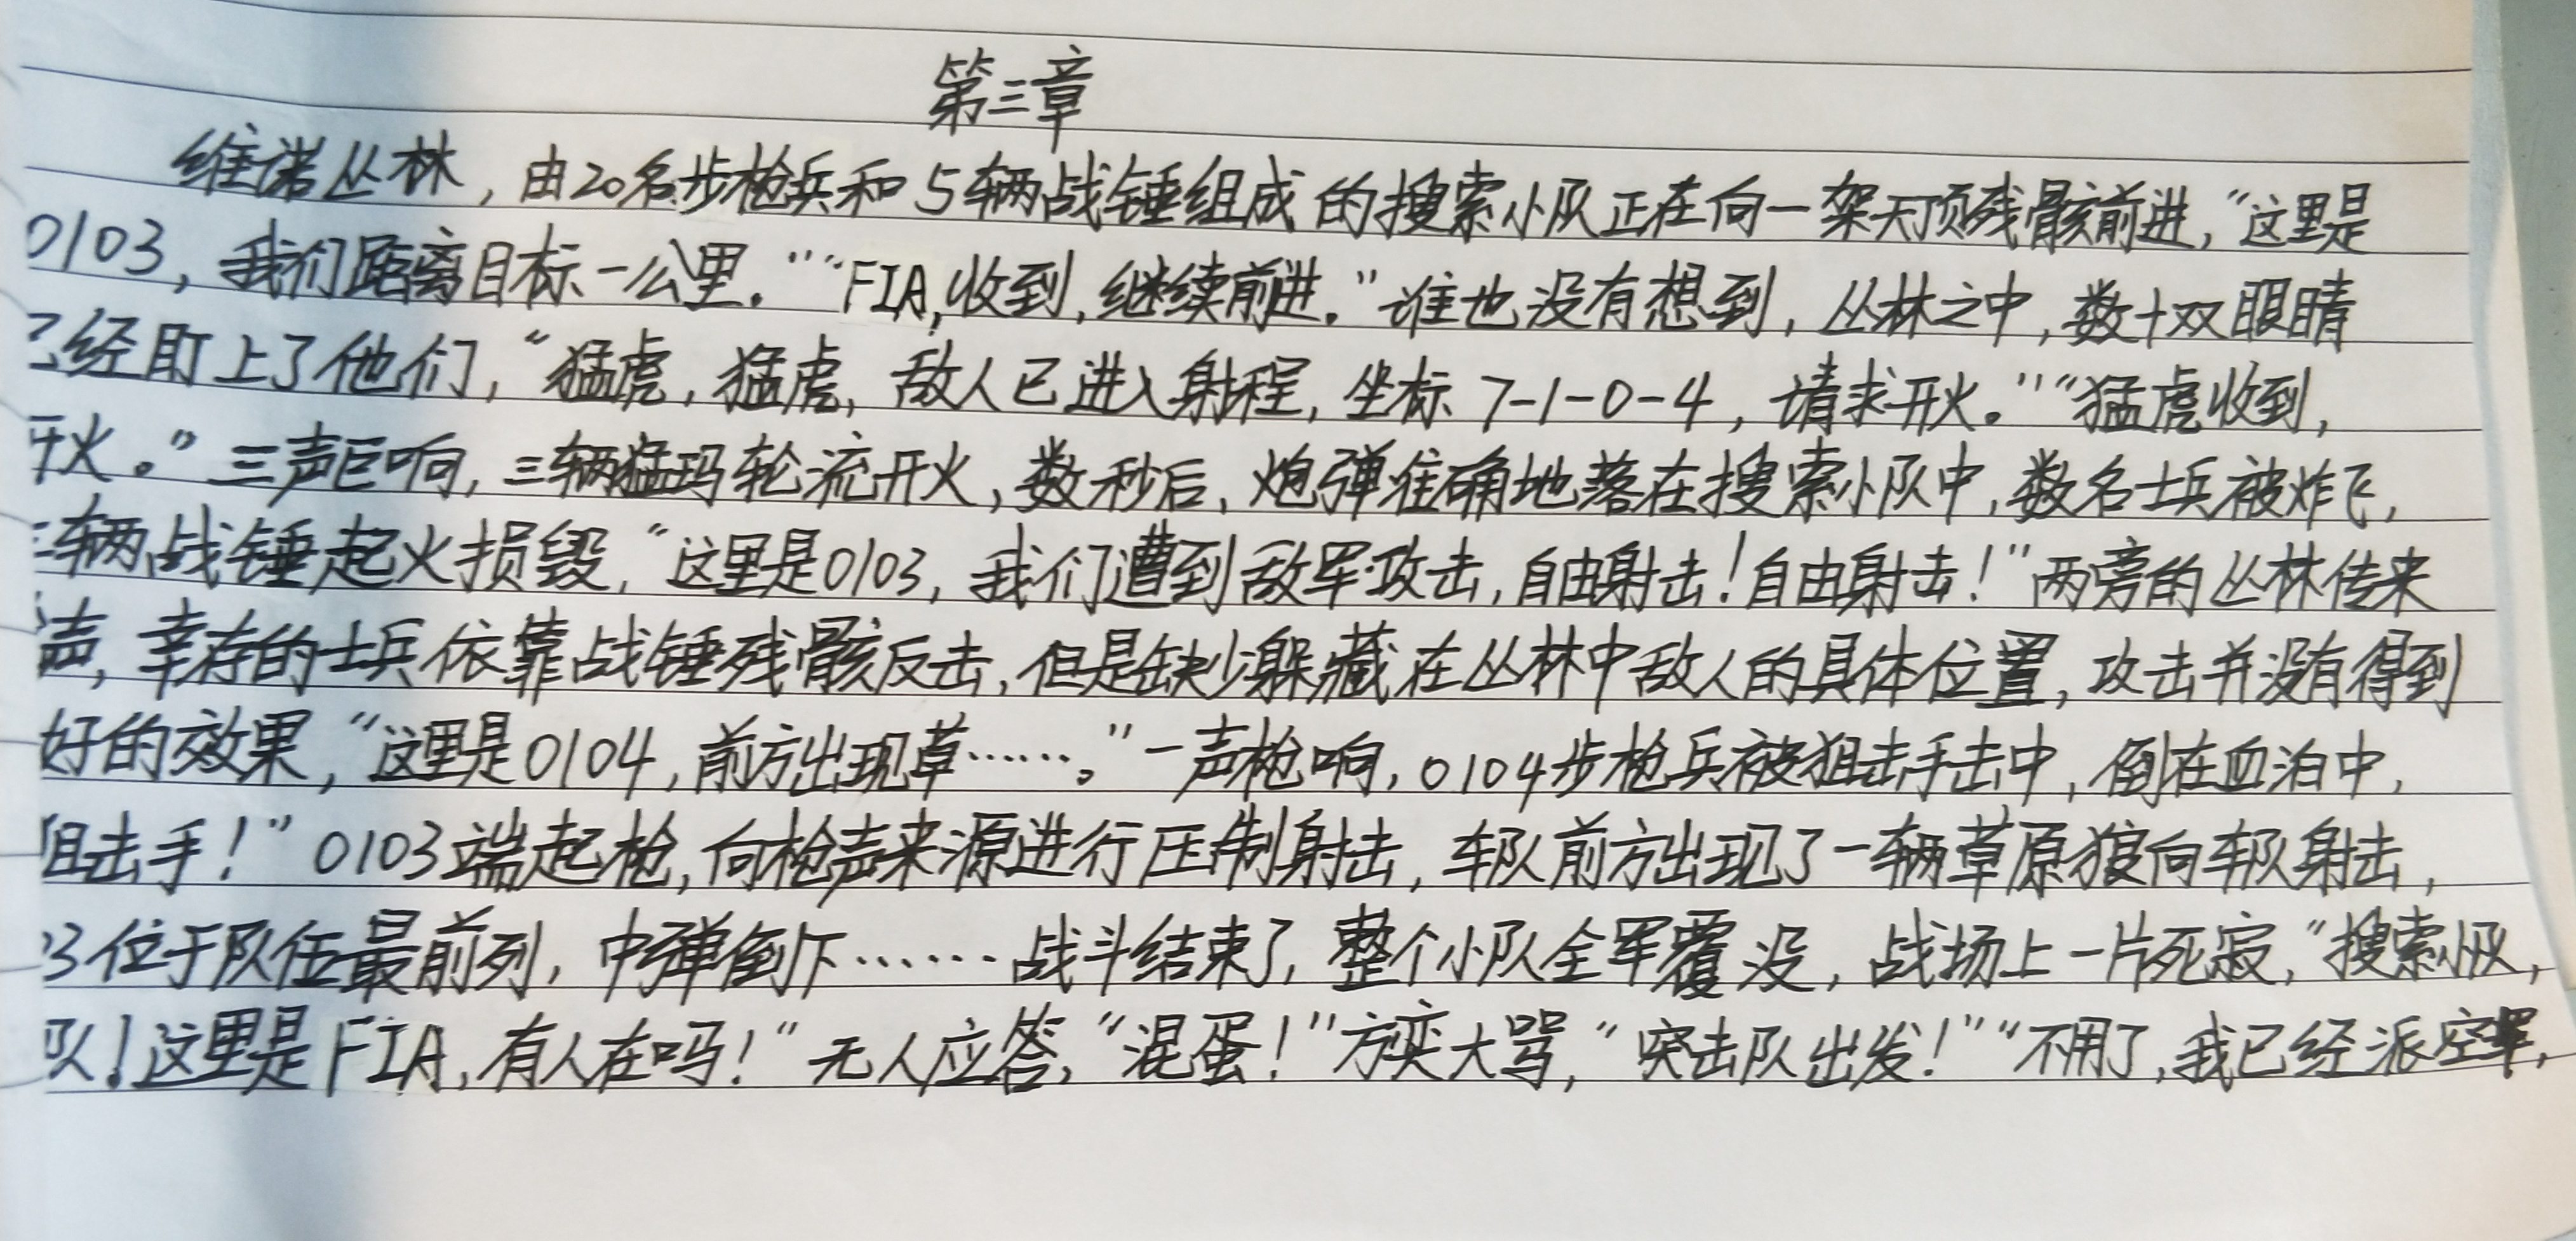 第三章
维诺丛林，由20名步枪兵和5辆战锤组成的搜索小队正在向一架天顶残骸前进，“这里是
0103，我们距离目标一公里。”“FIA，收到，继续前进。”谁也没有想到，丛林之中，数十双眼睛
已经盯上了他们，“猛虎，猛虎，敌人已进入射程，坐标7-1-0-4，请求开火。”“猛虎收到，
开火。”三声巨响，三辆猛玛轮流开火，数秒后，炮弹准确地落在搜索小队中，数名士兵被炸飞，
辆战锤起火损毁，“这里是0103，我们遭到敌军攻击，自由射击！自由射击！”两旁的丛林传来
声，幸存的士兵依靠战锤残骸反击，但是缺少躲藏在丛林中敌人的具体位置，攻击并没有得到
好的效果，“这里是0104，前方出现草……。”一声枪响，0104步枪兵被狙击手击中，倒在血泊中，
狙击手！”0103端起枪，向枪声来源进行压制射击，车队前方出现了一辆草原狼向车队射击，
3位于队伍最前列，中弹倒下……战斗结束了，整个小队全军覆没，战场上一片死寂，“搜索小队，
队！这里是FIA，有人在吗！”无人应答，“混蛋！”方奕大骂，“突击队出发！”“不用了，我已经派空军，